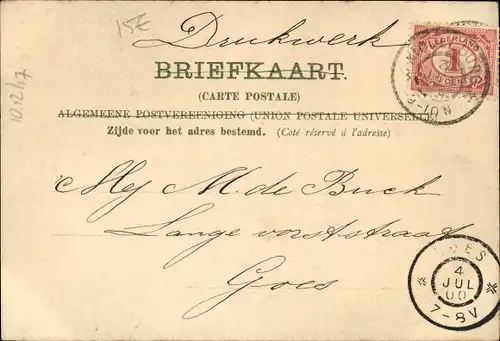 15€
Drukwerk
NEDERLAND
1
CENT
BRIEFKAART.
(CARTE POSTALE)
ALGEMEENE POSTVEREENIGING (UNION POSTALE UNIVERSELLE)
Zijde voor het adres bestemd. (Coté réservé á l'adresse)
10.12.17
Mej M. de Buck
Lange vorststraat
Goes
GOES
4
JUL
00
7-8V